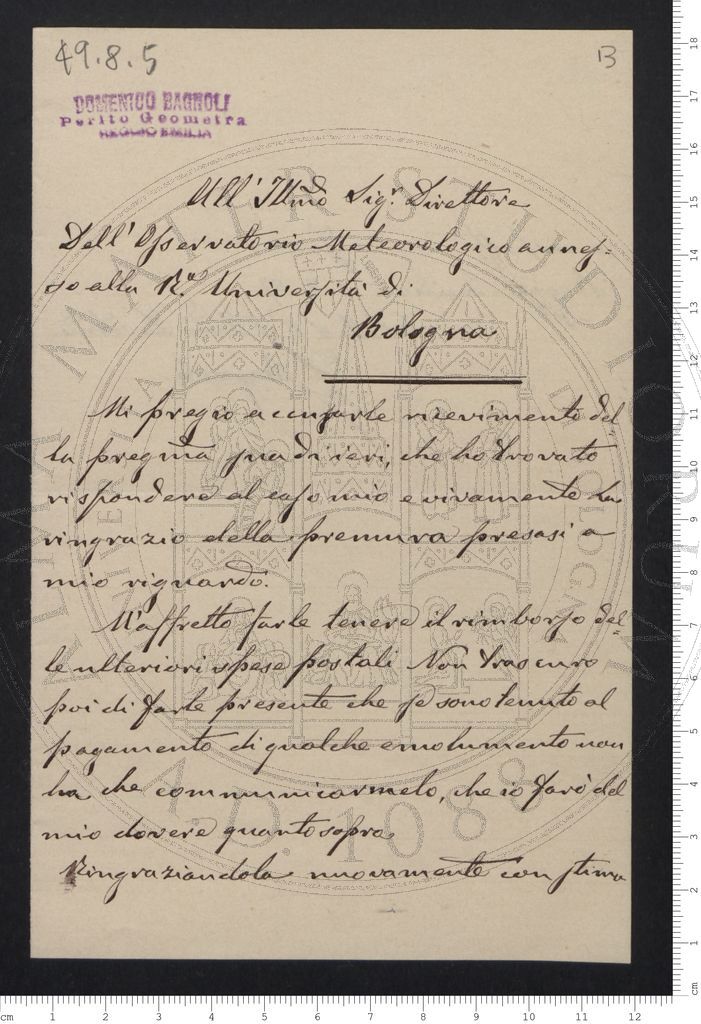 49.8.5
B
DOMENICO BAGNOLI
Perito Geometra
REGGIO EMILIA
All' Illmo Sigr. Direttore
Dell' Osservatorio Meteorologico annes=
so alla R.a Università di
Bologna
Mi pregio accusarle ricevimento del=
la pregma sua di ieri, che ho trovato
rispondere al caso mio e vivamente La
ringrazio della premura presasi a
mio riguardo.
M'affretto farle tenere il rimborso del=
le ulteriori spese postali. Non trascuro
poi di farle presente che se sono tenuto al
pagamento di qualche emolumento non
ha che communicarmelo, che io farò del
mio dovere quanto sopra.
Ringraziandola nuovamente con stima
ALMA MATER STUDIORUM
A.D. 1088